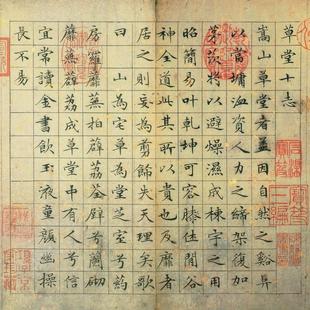 草堂十志
嵩山草堂者盖因自然之谿阜
以當墉洫資人力之締架復加
茅茨將以避燥濕成棟宇之用
昭簡易叶乾坤可容膝休閒谷
神全道此其所以貴也靡者
居之則妄為剪飾失天理矣歌
曰山為宅草為堂芝室兮药
房羅蘼蕪拍薜荔荃壁兮蘭砌
蘼蕪薜荔成草堂中有人兮信
宜常讀金書飲玉液童顏幽操
長不易